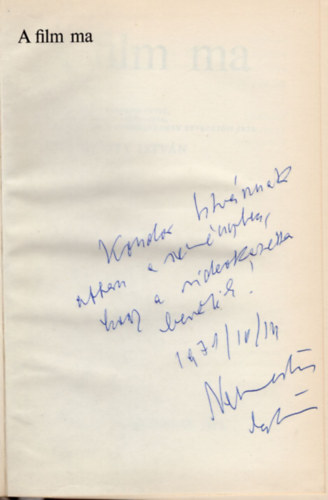 A film ma
Kondor Istvánnak
abban a reményben,
hogy a videokazetta
1971/IV/14
Nemeskürty